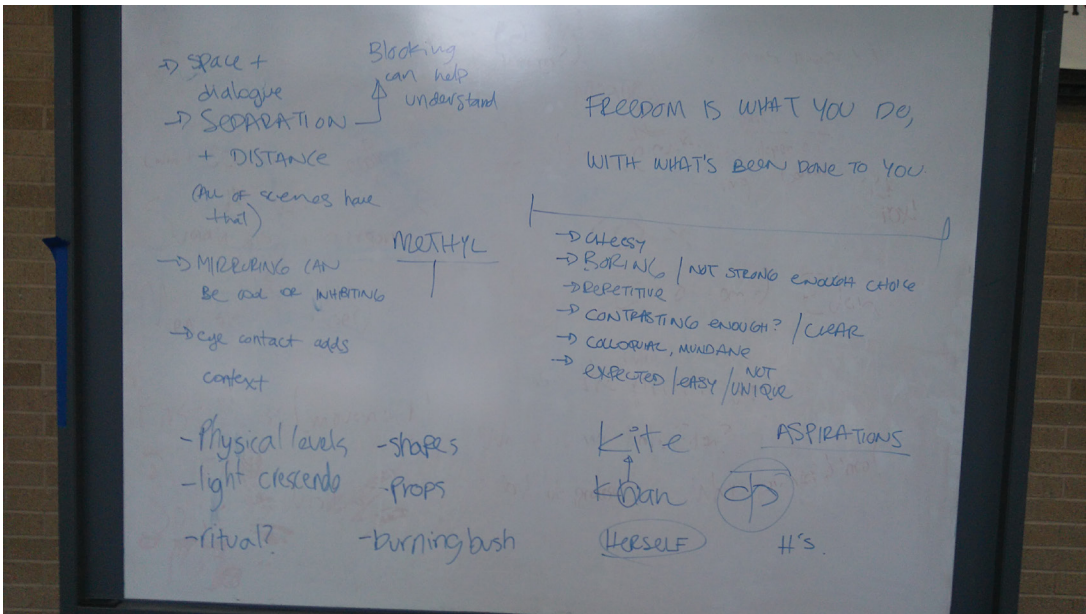 → Space +
dialogue
→ SEPARATION
+ DISTANCE
(All of scenes have
that)
Blocking
can help
understand
→ MIRRORING CAN
Be cool or INHIBITING
→ eye contact adds
context
METHYL
- Physical levels
- light crescendo
- ritual?
- shapes
- Props
- burning bush
FREEDOM IS WHAT YOU DO,
WITH WHAT'S BEEN DONE TO YOU
→ CHEESY
→ BORING / NOT STRONG ENOUGH CHOICE
→ REPETITIVE
→ CONTRASTING ENOUGH? / CLEAR
→ COLLOQUIAL, MUNDANE
→ EXPECTED / EASY / NOT UNIQUE
kite
khan
HERSELF
ASPIRATIONS
H's.